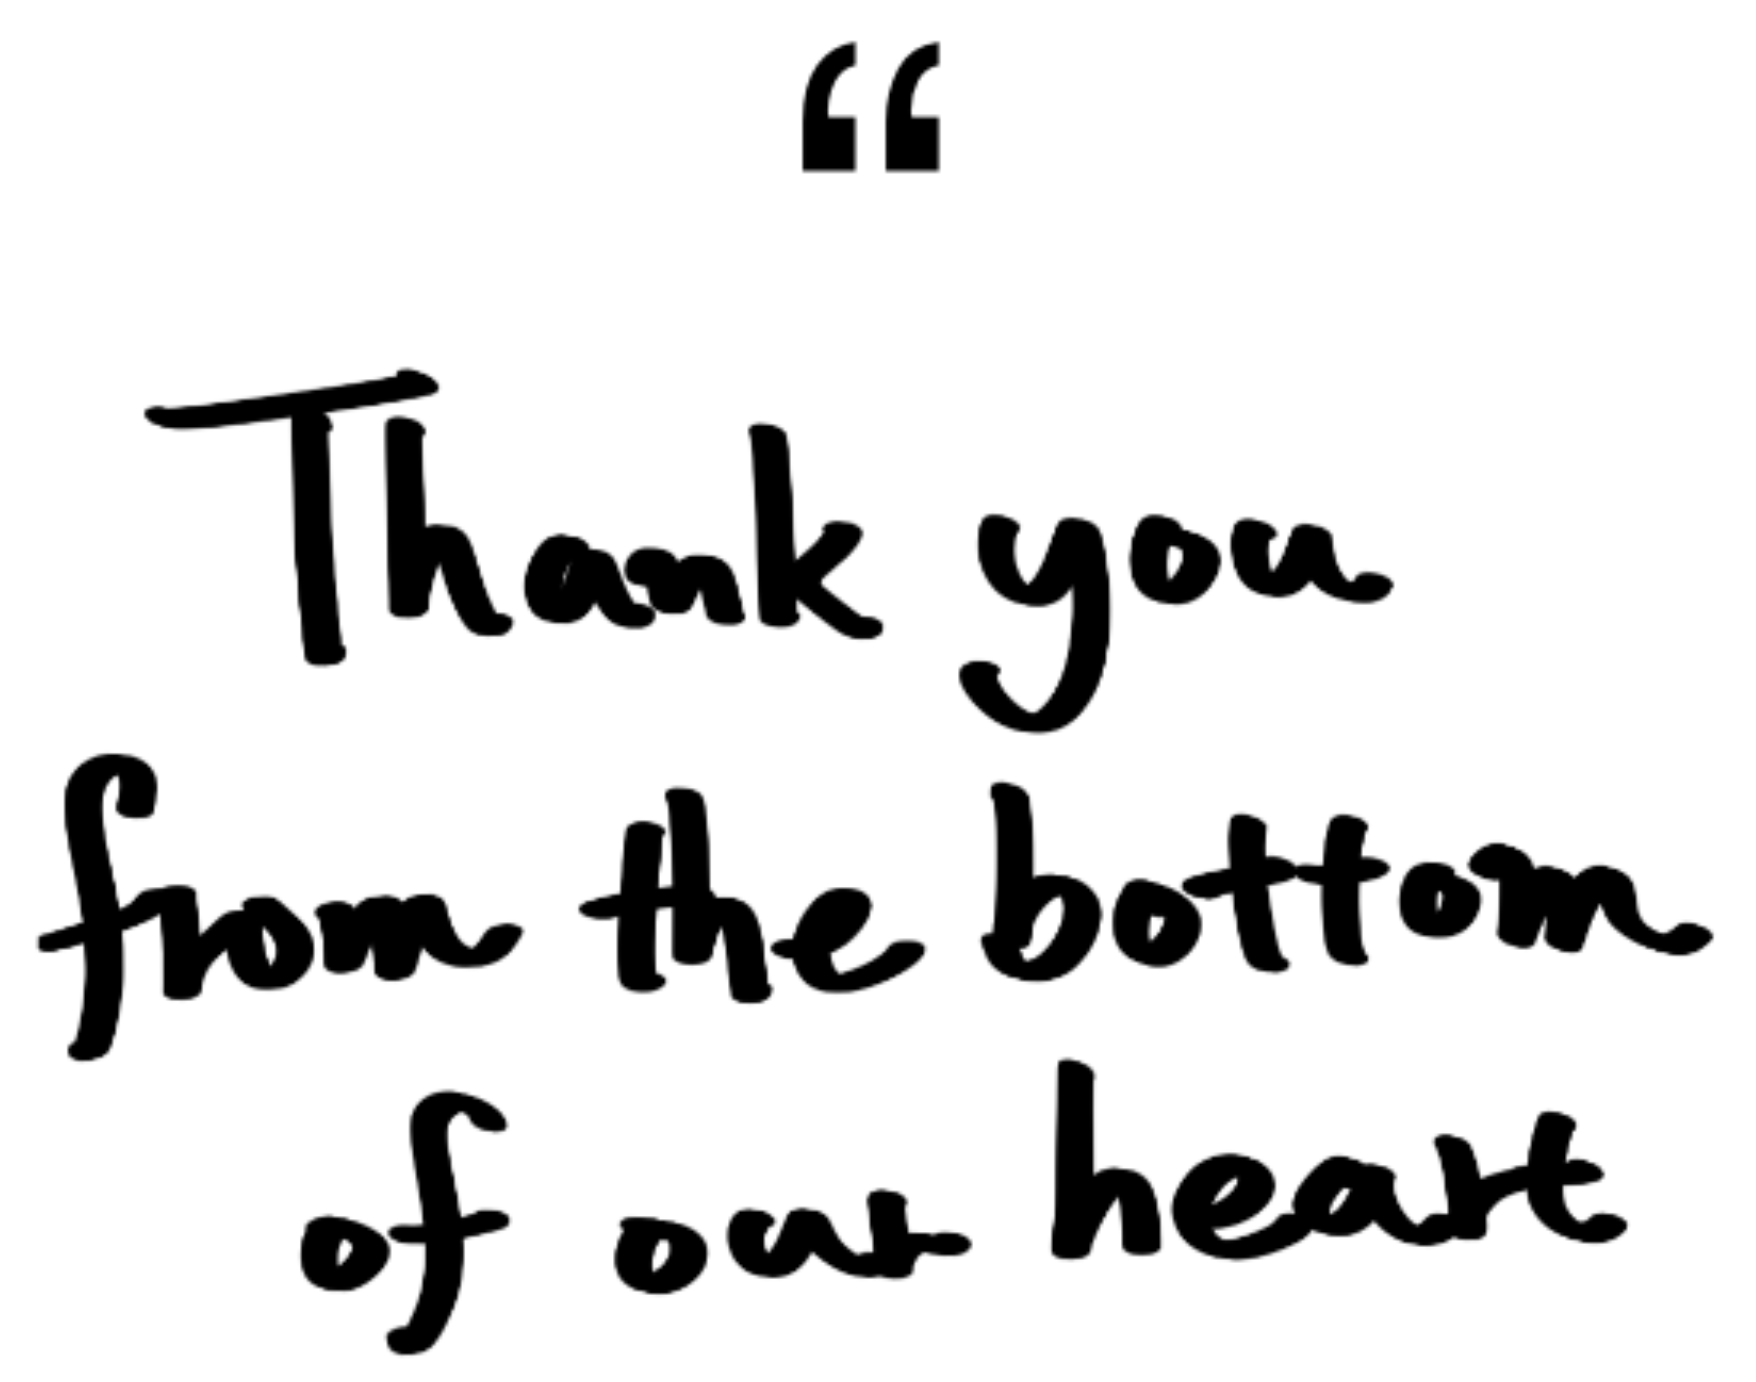 “
Thank you
from the bottom
of our heart